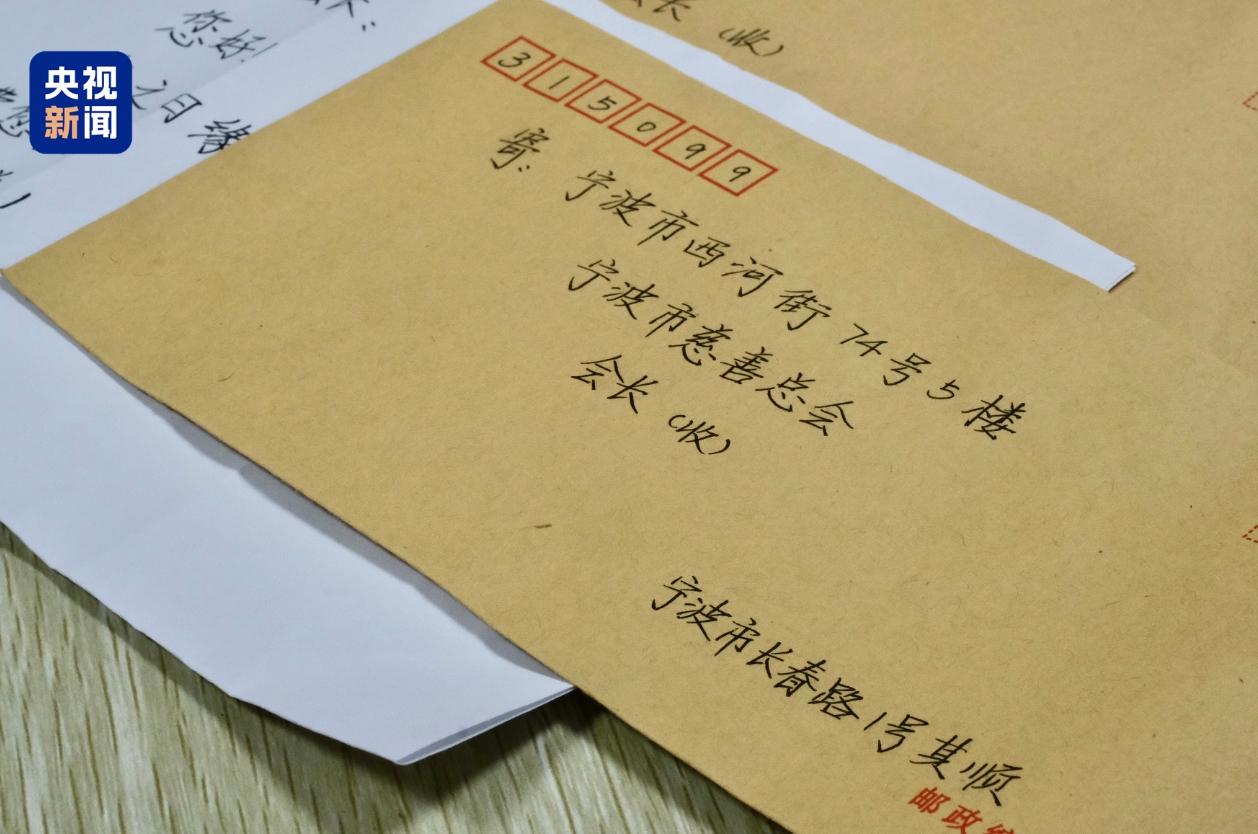 央视
新闻
您好!
之日缘
长(收)
315099
寄:
宁波市西河街74号5楼
宁波市慈善总会
会长(收)
宁波市长春路1号其顺
邮政编